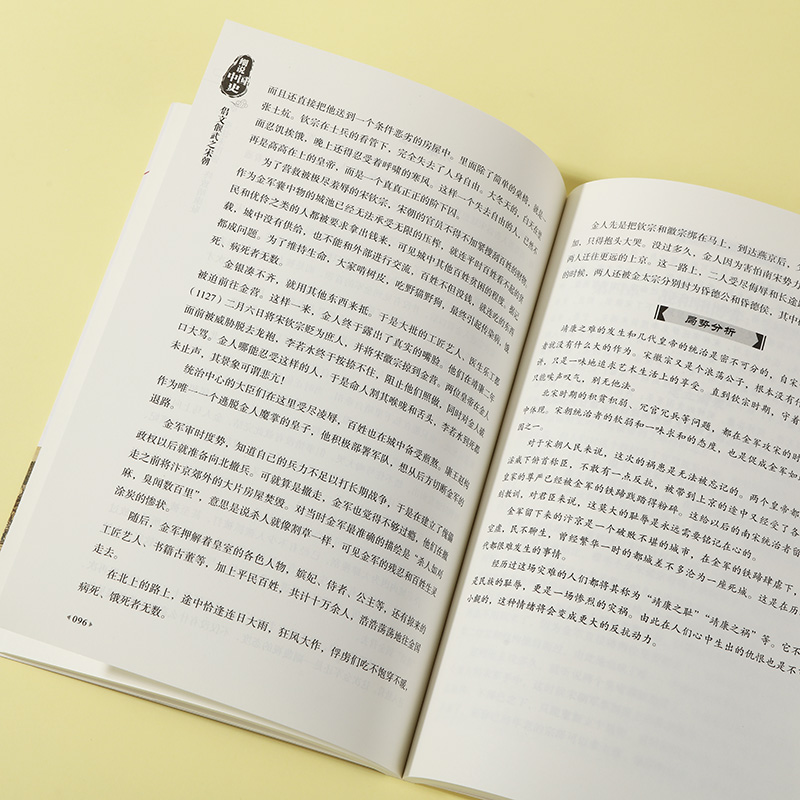 细说
中国
史
倡文偃武之宋朝
而且还直接把他送到一个条件恶劣的房屋中。里面除了简单的桌椅，就是一
张土坑。钦宗在士兵的看管下，完全失去了人身自由。大冬天的，白天
而忍饥挨饿，晚上还得忍受着呼啸的寒风。这样一个失去自由的人，已然不
再是高高在上的皇帝，而是一个真真正正的阶下囚。
为了营救被极尽羞辱的宋钦宗，宋朝的官员不得不加紧搜刮百姓的财物。
作为金军囊中物的城池已经无法承受无限的压榨，就连平时百姓看不起的贫
民和优伶之类的人都被要求拿出钱来，可见城中其他百姓贫困的程度。据记
我，城中没有供给，也不能和外部进行交流，百姓不但没钱，就连吃的东西
都成问题。为了维持生命，大家啃树皮，吃野猫野狗，最终引起传染病，饿
死、病死者无数。
金银凑不齐，就用其他东西来抵。于是大批的工匠艺人、医生乐工都
被迫前往金营。这样一来，金人终于露出了真实的嘴脸。他们在靖康二年
（1127）二月六日将宋钦宗贬为庶人，并将宋徽宗捺到金营。两位皇帝在金人
面前被威胁脱去龙袍，李若水终于按捺不住，阻止他们照做，同时对金人破
口大骂。金人哪能忍受这样的人，于是命人割其喉咙和舌头，李若水到死都
未止声，其景象可谓悲亢！
统治中心的大臣们在这里受尽凌辱，百姓也在城中备受煎熬。康王赵构
作为唯一一个逃脱金人魔掌的皇子，他积极部署军队，想从后方切断金军的
退路。
金军审时度势，知道自己的兵力不足以打长期战争，于是在建立了傀儡
政权以后就准备向北撤兵。可就算是撤走，金军也觉得不够过瘾，他们在撤
走之前将汴京郊外的大片房屋焚毁。对当时金军最准确的描绘是“杀人如刈
麻，臭闻数百里”，意思是说杀人就像割草一样，可见金军的残忍和百姓生灵
涂炭的惨状。
随后，金军押解着皇室的各色人物，嫔妃、侍者、公主等，还有掠来的
工匠艺人、书籍古董等，加上平民百姓，共计十万余人，浩浩荡荡地往金国
走去。
在北上的路上，途中恰逢连日大雨，狂风大作，俘虏们吃不饱穿不暖，
病死、饿死者无数。
096
金人先是把钦宗和徽宗绑在马上，到达燕京后，
加，只得抱头大哭。没过多久，金人因为害怕南宋势力
两人还往更远的上京。这一路上，二人受尽侮辱和长途
的时候，两人还被金太宗分别封为昏德公和昏德侯，其中
局势分析
靖康之难的发生和几代皇帝的统治是密不可分的，自宋
者就没有什么大的作为。宋徽宗又是个浪荡公子，根本没有作
讲，只是一味地追求艺术生活上的享受。直到钦宗时期，守着
只能唉声叹气，别无他法。
北宋时期的积贫积弱、冗官冗兵等问题，都在金军攻宋的时
中体现。宋朝统治者的软弱和一味求和的态度，也是促成金军如
因之一。
对于宋朝人民来说，这次的祸患是无法被忘记的。两个皇帝都
淫威下俯首称臣，不敢有一点反抗，被带到上京的途中又经受了各
皇家的尊严已经被金军的铁蹄践踏得粉碎。这给以后的南宋统治者留
刻教训，对君臣来说，这莫大的耻辱是永远需要铭记在心的。
金军留下来的汴京是一个破败不堪的城市，在金军的铁蹄肆虐下，
空虚，民不聊生，曾经繁华一时的都城差不多沦为一座死城。这是在历
代都很难发生的事情。
经历过这场灾难的人们都将其称为“靖康之耻”“靖康之祸”等。它不
是民族的耻辱，更是一场惨烈的灾祸。由此在人们心中生出的仇恨也是不
小觑的，这种情绪将会变成更大的反抗动力。